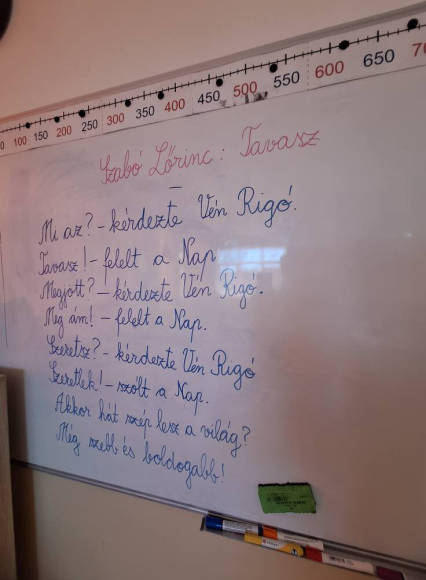 100 150 200 250 300 350 400 450 500 550 600 650
Szabó Lőrinc: Tavasz
Mi az? – kérdezte Vén Rigó.
Tavasz! – felelt a Nap
Megjött? – kérdezte Vén Rigó.
Meg ám! – felelt a Nap.
Szeretsz? – kérdezte Vén Rigó
Szeretlek! – szólt a Nap.
Akkor hát szép lesz a világ?
Még szebb és boldogabb!